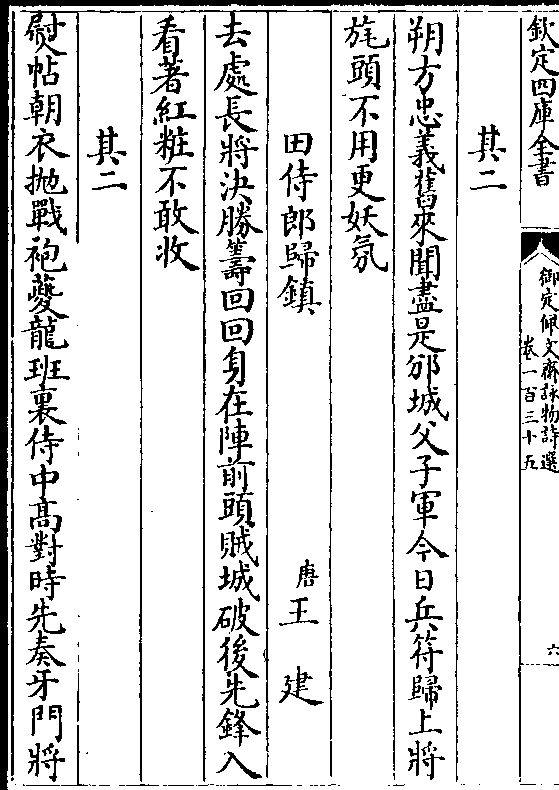 欽定四庫全書
御定佩文齋詠物詩選
卷一百三十五
六
其二
朔方忠義舊來聞盡是邠城父子軍今日兵符歸上將
旄頭不用更妖氛
田侍郎歸鎮
唐王建
去處長將決勝籌回回身在陣前頭賊城破後先鋒入
看著紅粧不敢收
其二
熨帖朝衣拋戰袍夔龍班裏侍中高對時先奏牙門將